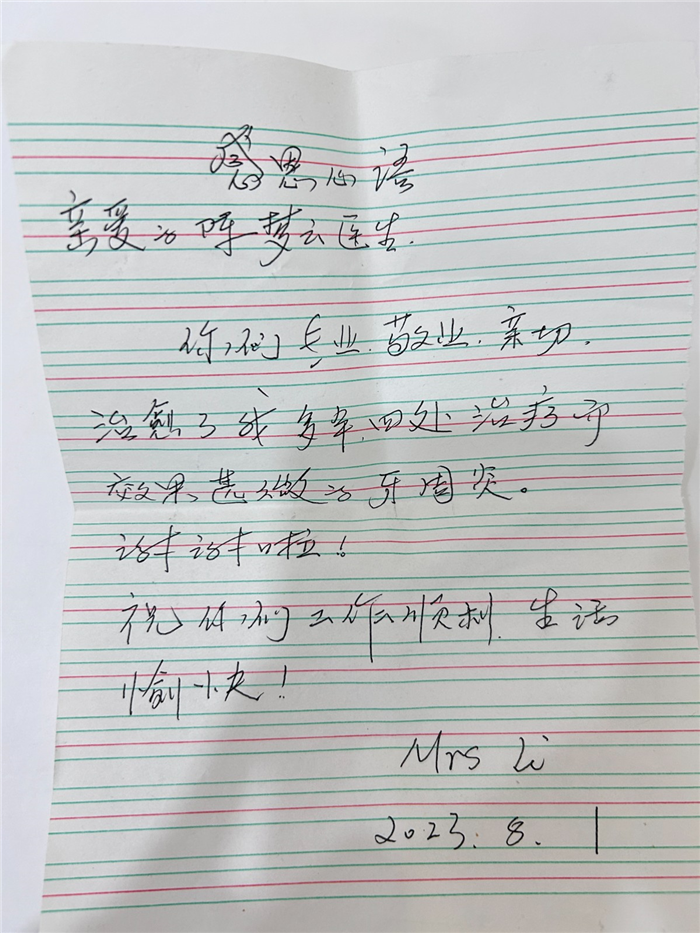 感恩心语
亲爱的陈梦云医生.
你们专业.敬业.亲切.
治愈了我多年四处治疗而
效果甚微的牙周炎。
谢谢啦!
祝你们工作顺利.生活
愉快!
Mrs Li
2023.8.1